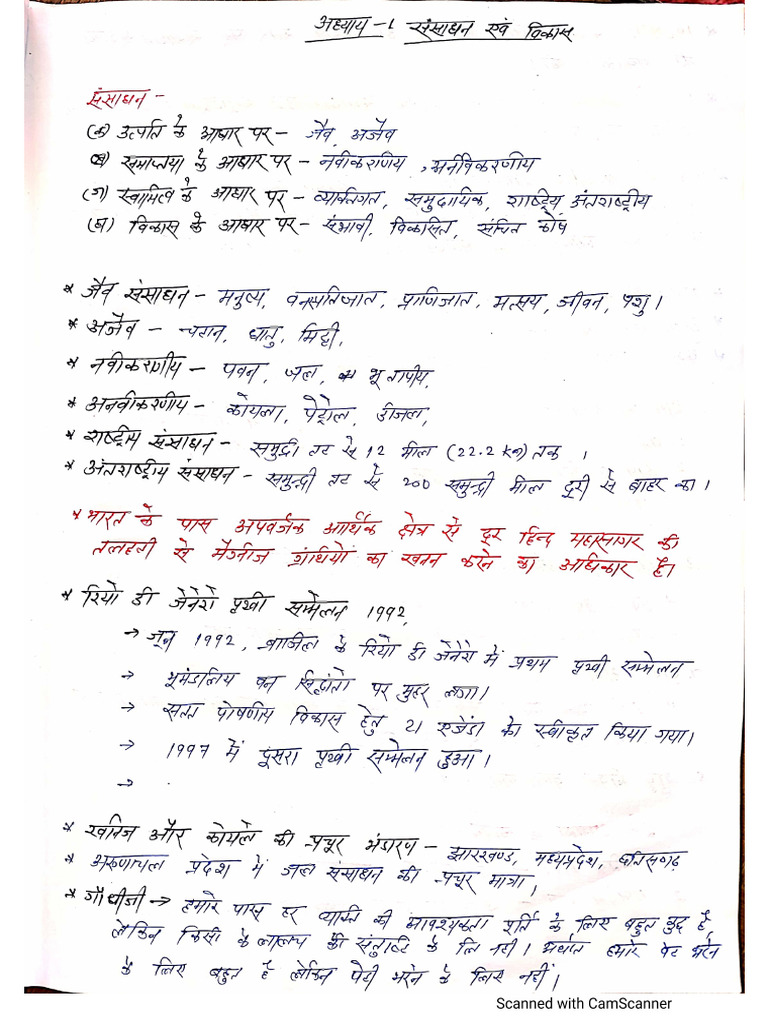 अध्याय -1 संसाधन एवं विकास
संसाधन -
(क) उत्पति के आधार पर - जैव, अजैव
(ख) समाप्यता के आधार पर - नवीकरणीय, अनविकरणीय
(ग) स्वामित्व के आधार पर - व्यक्तिगत, समुदायिक, राष्ट्रीय अंतराष्ट्रीय
(घ) विकास के आधार पर - संभावी, विकासित, संचित कोष
* जैव संसाधन - मनुष्य, वनस्पतिजात, प्राणिजात, मत्सय, जीवन, पशु।
* अजैव - चटान, धातु, मिट्टी,
* नवीकरणीय - पवन, जल, भू तापीय,
* अनवीकरणीय - कोयला, पेट्रोल, डीजल,
* राष्ट्रीय संसाधन - समुद्री तट से 12 मील (22.2 km) तक।
* अंतराष्ट्रीय संसाधन - समुन्द्री तट से 200 समुन्द्री मील दूरी से बाहर का।
* भारत के पास अपवर्जक आर्थिक क्षेत्र से दूर हिन्द महासागर की
तलहटी से मैंगनीज ग्रंथियों का खनन करने का अधिकार है।
* रियो डी जेनेरो पृथ्वी सम्मेलन 1992,
→ जून 1992, ब्राजिल के रियो डी जेनेरो में प्रथम पृथ्वी सम्मेलन
→ भूमंडलिय वन सिद्धांतो पर मुहर लगा।
→ सतत पोषणीय विकास हेतु 21 एजेंडा को स्वीकृत किया गया।
→ 1997 में दूसरा पृथ्वी सम्मेलन हुआ।
→ .
* खनिज और कोयले की प्रचूर भंडारण - झारखण्ड, मध्यप्रदेश, छत्तिसगढ़
* अरुणाचल प्रदेश में जल संसाधन की प्रचूर मात्रा,
* गाँधीजी → हमारे पास हर व्यक्ति की आवश्यकता पूर्ति के लिए बहुत कुछ है,
लेकिन किसी के लालच की संतुष्टि के लि नहीं। अर्थात हमारे पेट भरने
के लिए बहुत है लेकिन पेटी भरने के लिए नहीं।
Scanned with CamScanner